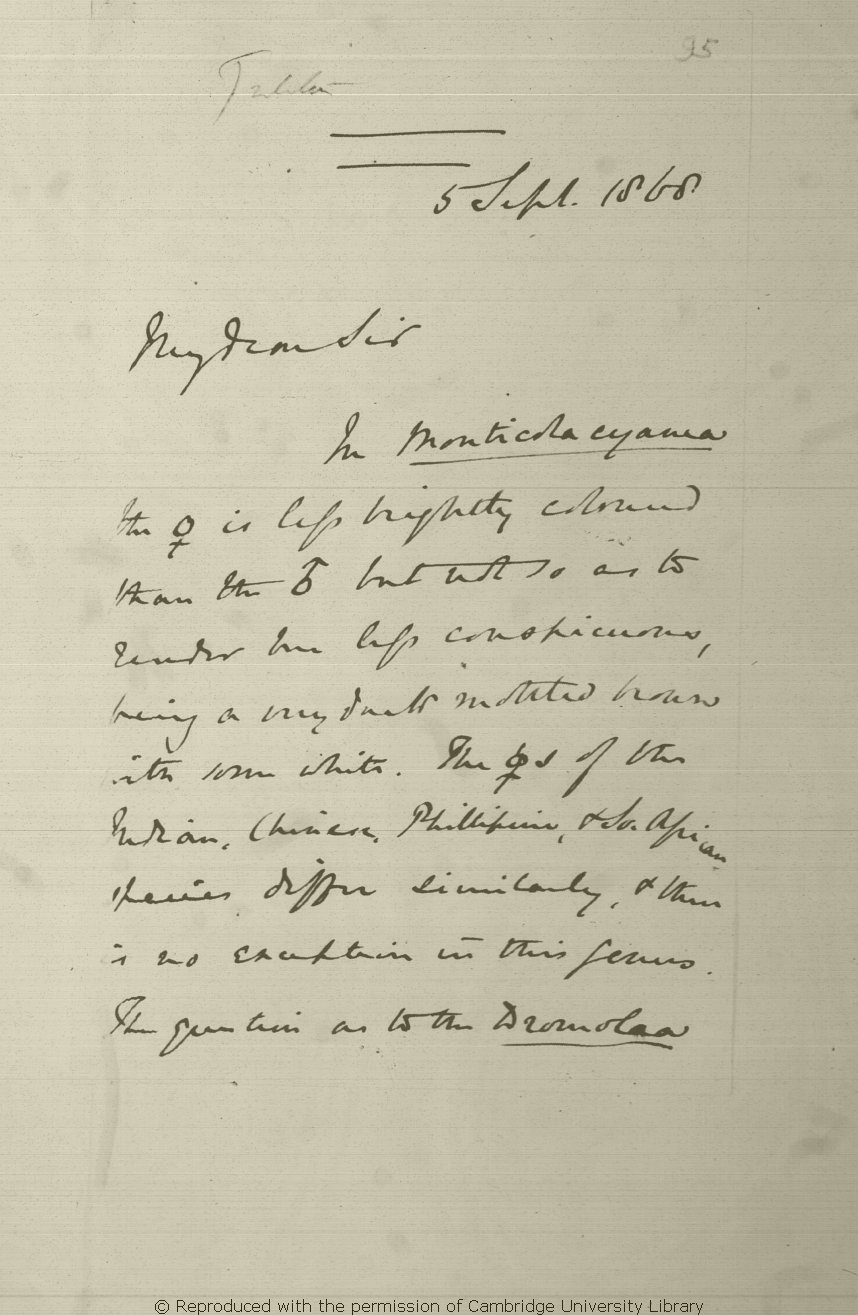 95
5 Sept. 1868
My dear Sir
In Monticola cyanea
the ♀ is less brightly coloured
than the ♂ but not so as to
render her less conspicuous,
being a very dark mottled brown
with some white. The ♀s of the
Indian, Chinese, Phillipine, & So. African
species differ similarly, & there
is no exception in this genus.
The question as to the Dromolaea
© Reproduced with the permission of Cambridge University Library